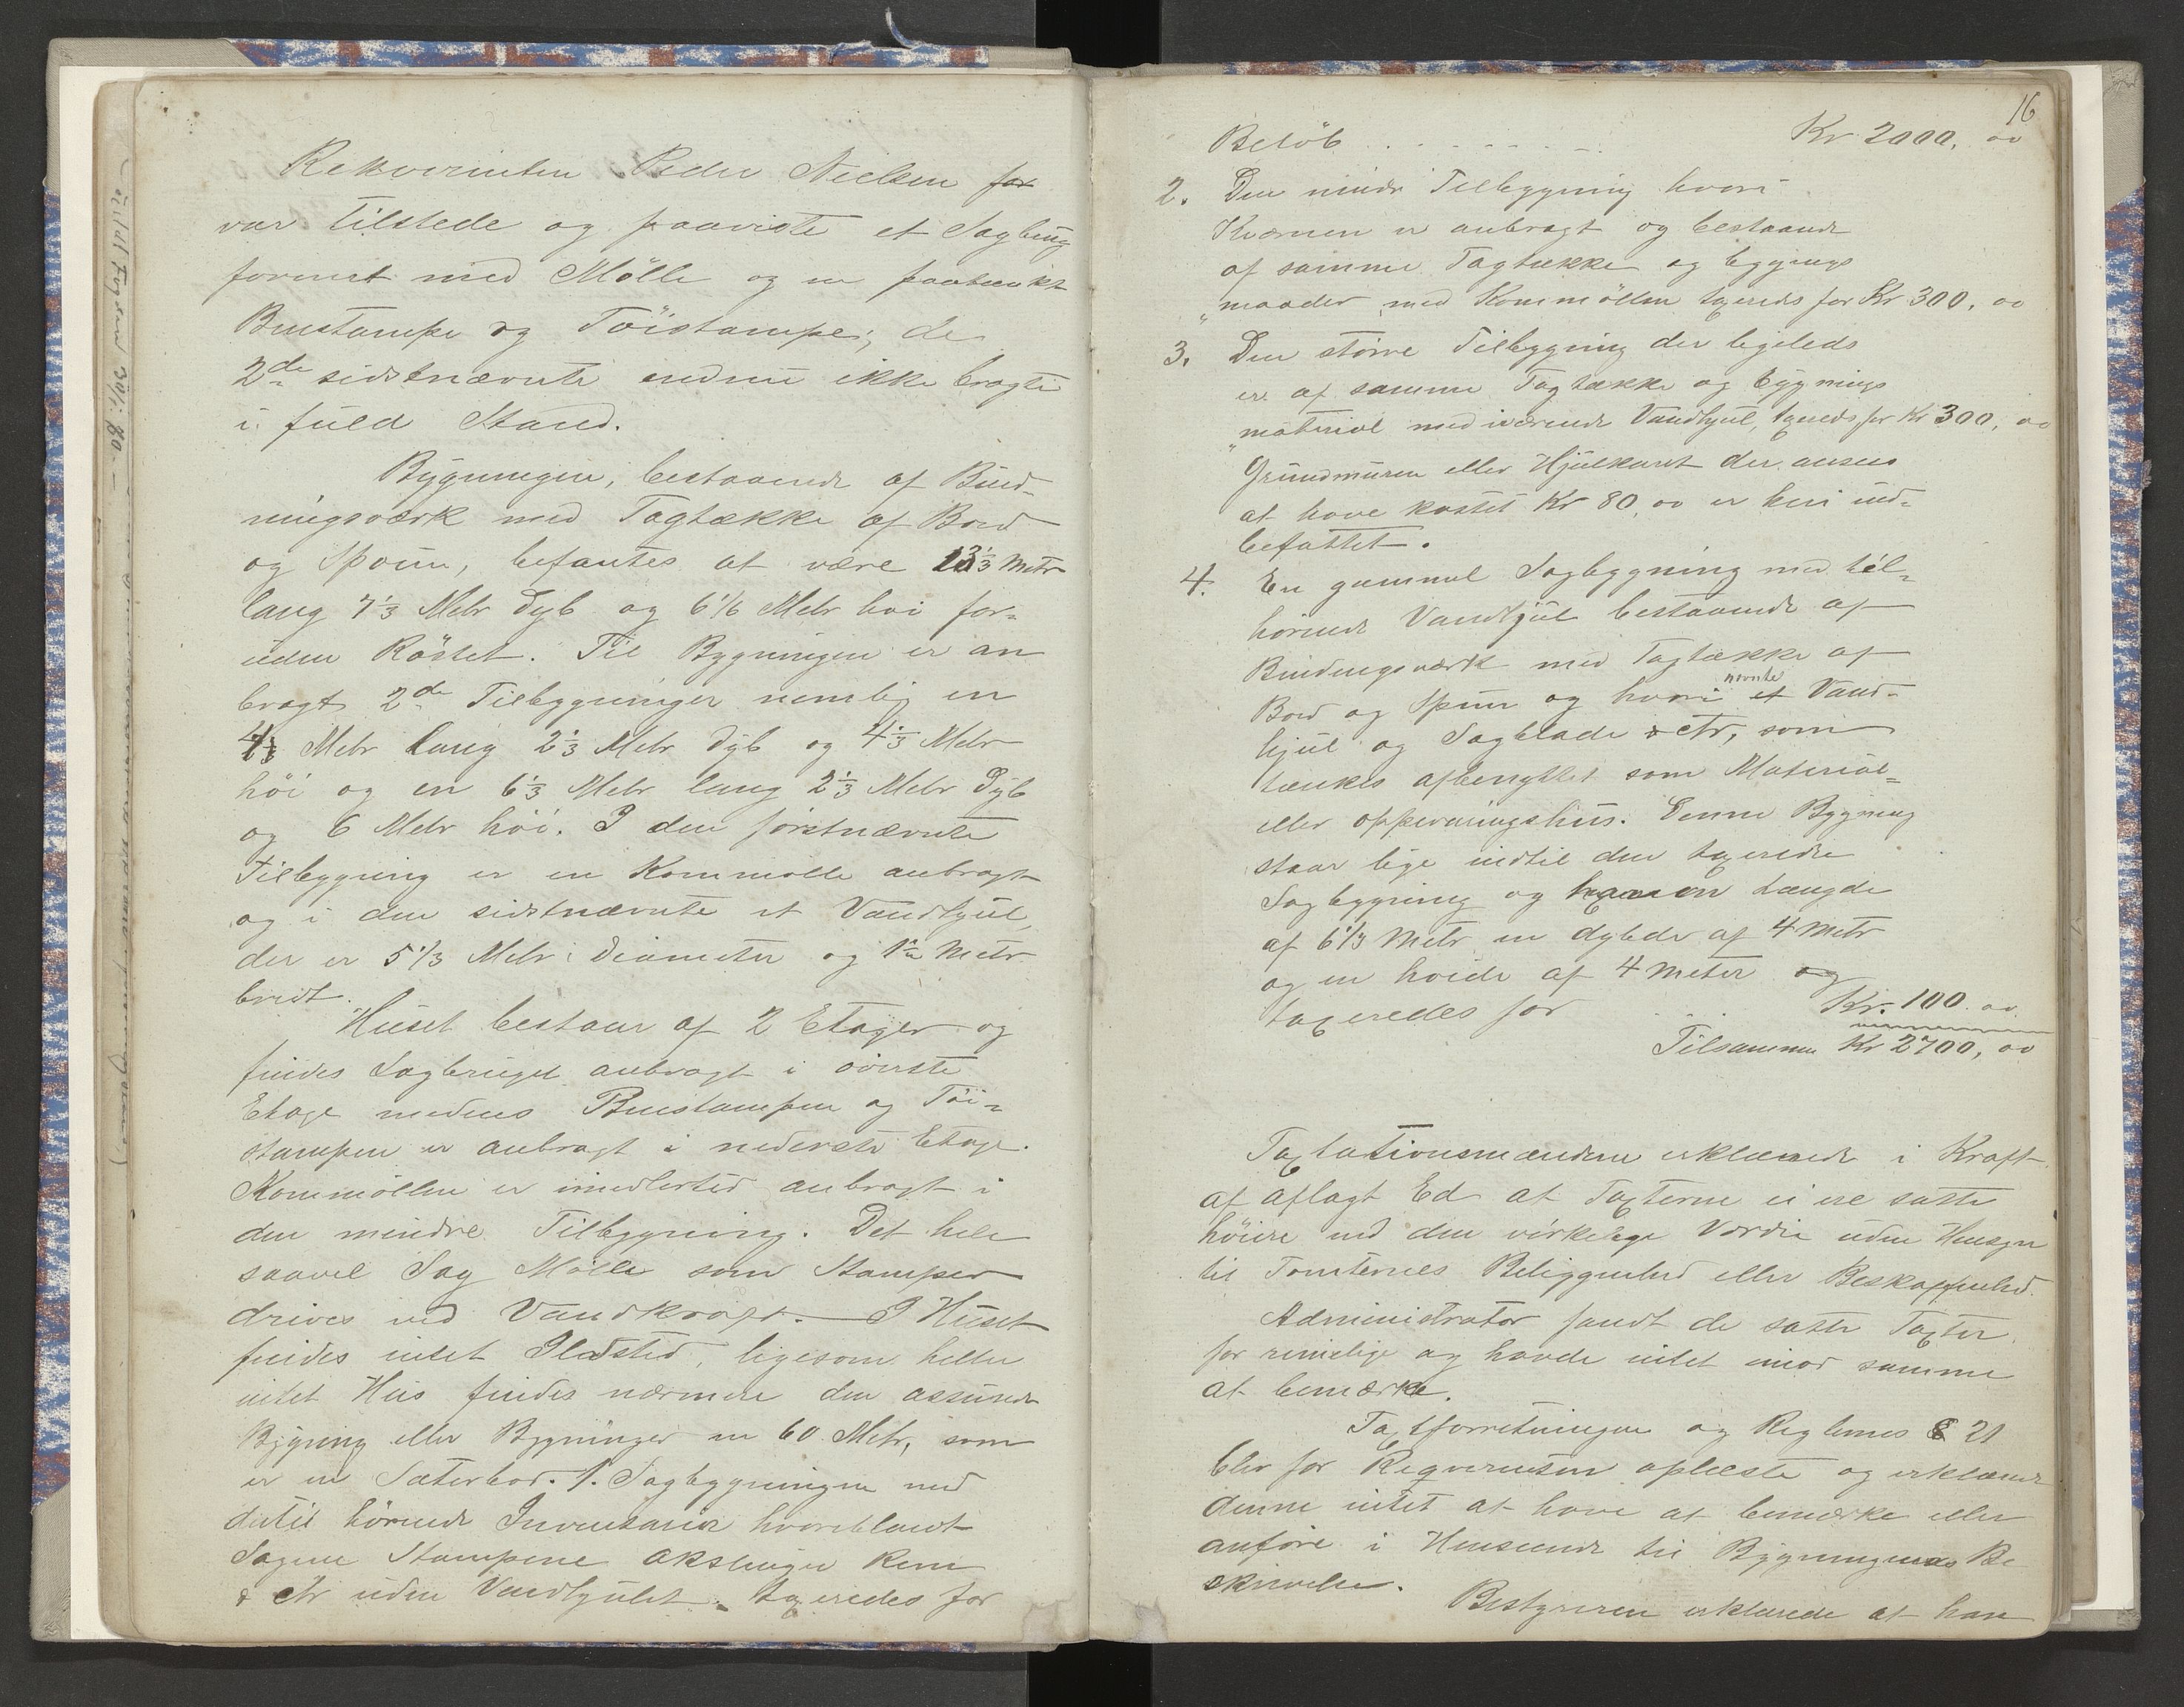 Rekvirenten Peder Nielsen for
var tilstede og paaviste et Sagbrug
forenet med Mölle og en paatænkt
Benstampe og Töistampe; de
2de sidstnævnte endnu ikke bragte
i fuld Stand.
Bygningen, bestaaende af Bind-
ningsværk med Tagtække af Bord
og Spoun, befantes at være 13 1/3 Metr
lang 7 1/3 Metr dyb og 6 1/6 Metr høi for-
uden Röstet. Til Bygningen er an
bragt 2de Tilbygninger nemlig en
4 1/3 Metr lang 2 1/3 Metr dyb og 4 1/3 Metr
höi og en 6 1/3 Metr lang 2 1/3 Metr dyb
og 6 Metr höi. I den förstnævnte
Tilbygning er en Kornmølle anbragt
og i den sidstnævnte et Vandhjul,
der er 5 1/3 Metr i Diameter og Metr
bredt.
Huset bestaar af 2 Etager og
findes Sagbruget anbragt i øverste
Etage medens Benstampen og Töi-
stampen er anbragt i nederste Etage.
Kornmöllen er imidlertid anbragt i
den mindre Tilbygning. Det hele
saavel Sag Mölle som Stamper
drives ved Vandkraft. I Huset
findes intet Ildsted, ligesom heller
intet Hus findes nærmere den assurerede
Bygning eller Bygninger en 60 Metr, som
er en Sæterbod. 1. Sagbygningen med
dertil hörende Inventarier hvoriblandt
Sagene Stampene Akslinger Rem
& etr uden Vandhjulet taxeredes for
16
Belöb . . . . . . . . . Kr 2000, 00
2. Den mindre Tilbygning hvori
Kværnen er anbragt og bestaaende
af samme Tagtække og bygnings
"maader med Kornmöllen taxeredes for Kr 300, 00
3. Den större Tilbygning der ligeleds
er af samme Tagtække og bygnings
"material med iværende Vandhjul, taxeredes for Kr 300, 00
Grundmuren eller Hjulkaret der ansees
at have kostet Kr 80,00 er heri ind-
befattet.
4. En gammel Sagbygning med til-
hörende Vandhjul bestaaende af
Bindingsværk med Tagtække af
Bord og Spun og hvori nævnte et Vand-
hjul og Sagblade & etr, som
tænkes afbenyttet som Material-
eller oppevaringshus. Denne Bygning
staar lige indtil den taxerede
Sagbygning og haver en Længde
af 6 1/3 Metr en dybde af 4 Metr
og en høide af 4 Meter og
taxeredes for . . Kr. 100. 00.
Tilsammen Kr 2700, 00
Taxtationsmændene erklærede i Kraft
af aflagt Ed at Taxterne ei ere satte
höiere end den virkelige Værdie uden Hensyn
til Tomternes Beliggenhed eller Beskaffenhed.
Administrator fandt de satte Taxter
for rimelige og havde intet imod samme
at bemærke.
Taxtforretningen og Reglernes § 21
blev for Reqverenten oplæste og erklærede
denne intet at have at bemærke eller
anföre i Henseende til Bygningenes Be
skrivelse.
Bestyreren erklærede at han